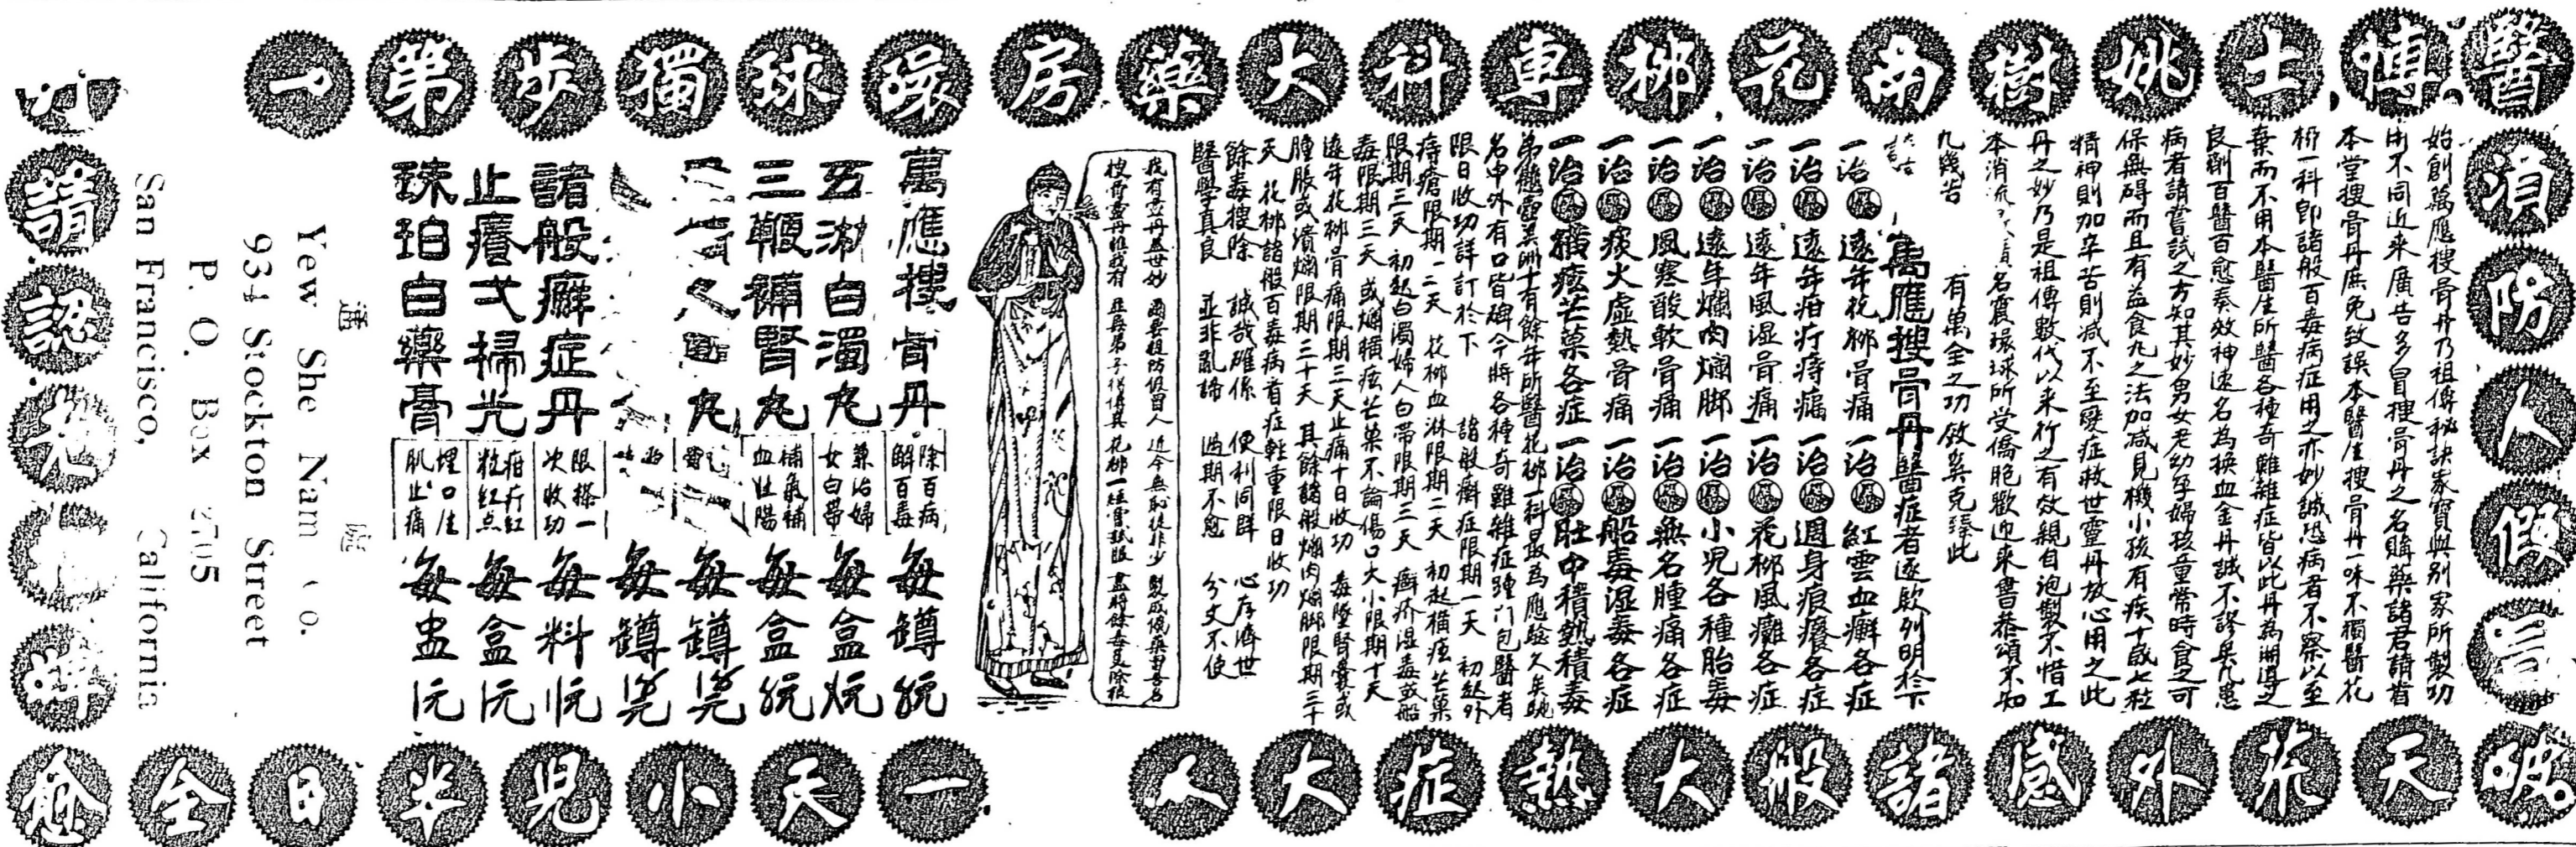 醫博士姚樹南花柳專科大藥房環球獨步第一
須防人假冒
始創萬應搜骨丹乃祖傳秘訣家寶與別家所製功
用不同近來廣告多冒搜骨丹之名購藥諸君請看
本堂搜骨丹庶免致誤本醫生搜骨丹一味不獨醫花
柳一科卽諸般百毒病症用之亦妙誠恐病者不察以至
棄而不用本醫生所醫各種奇難雜症皆以此丹為湘導之
良劑百醫百愈奏效神速名為換血金丹誠不謬矣凡患
病者請嘗試之方知其妙男女老幼孕婦孩童常時食之可
保無碍而且有益食丸之法加減見機小孩有疾十歲七粒
精神則加辛苦則減不至變症救世靈丹放心用之此
丹之妙乃是祖傳數代以來行之有效親自泡製不惜工
本消流 名震環球所受僑胞歡迎來書恭頌不知
凡幾告 有萬全之功效奚克臻此
萬應搜骨丹醫症者逐欵列明於下
一治遠年花柳骨痛 一治紅雲血癬各症
一治遠年疳疔痔瘺 一治週身痕癢各症
一治遠年風湿骨痛 一治花柳風癱各症
一治遠年爛肉爛脚 一治小兒各種胎毒
一治風寒酸軟骨痛 一治無名腫痛各症
一治痰火虛熱骨痛 一治船毒湿毒各症
一治橫痃芒菓各症 一治肚中積熱積毒
弟懸壺美洲十有餘年所醫花柳一科最為應驗久矣馳
名中外有口皆碑今將各種奇難雜症踵门包醫者
限日收功詳訂於下 諸般癬症限期一天 初起外
痔瘡限期一二天 花柳血淋限期二天 初起橫痃芒菓
限期三天 初起白濁婦人白帶限期三天 癬疥湿毒或船
毒限期三天 或爛橫痃芒菓不論傷口大小限期十天
遠年花柳骨痛限期三天止痛十日收功 毒墜腎囊或
腫脹或潰爛限期三十天 其餘諸般爛肉爛脚限期三十
天 花柳諸般百毒病者症輕重限日收功
餘毒搜除 誠哉確係 便利同群 心存濟世
醫學真良 並非亂諦 過期不愈 分文不使
我有靈丹蓋世妙 爾要提防假冒人 近今無恥徒非少 製成僞藥冒吾名
搜骨靈丹惟我有 並無弟子得傳真 花柳一經嘗試服 盡將餘毒更除根
萬應搜骨丹 除百病解百毒 每罇
五淋白濁丸 兼治婦女白帶 每盒
三鞭補腎丸 補氣補血壯陽 每盒
每罇
每罇
諸般癬症丹 限搽一次收功 每料
止癢弍掃光 疳疔紅粒紅点 每盒
珠珀白藥膏 埋口生肌止痛 每盅
Yew She Nam Co.
934 Stockton Street
P. O. Box
San Francisco, California
請認
破天荒外感諸般大熱症大人一天小兒半日全愈